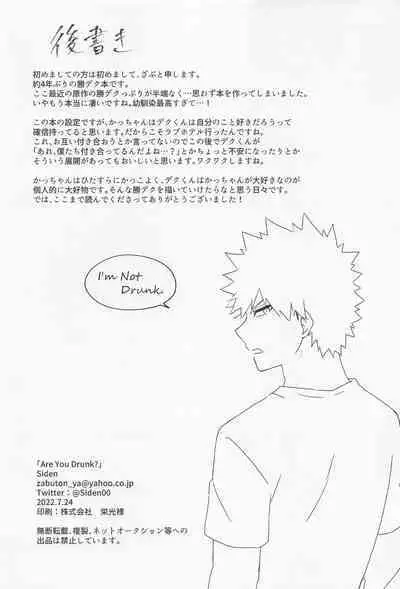 後書き
初めましての方は初めまして、ざぶと申します。
約4年ぶりの勝デク本です。
ここ最近の原作の勝デクっぷりが半端なく…思わず本を作ってしまいました。
いやもう本当に凄いですね。幼馴染最高すぎて…!
この本の設定ですが、かっちゃんはデクくんは自分のこと好きだろうって
確信持ってると思います。だからこそラブホテル行ったんですね。
これ、お互い付き合おうとか言ってないのでこの後でデクくんが
「あれ、僕たち付き合ってるんだよね…?」とかちょっと不安になったりとか
そういう展開があってもおいしいと思います。ワクワクしますね。
かっちゃんはひたすらにかっこよく、デクくんはかっちゃんが大好きなのが
個人的に大好物です。そんな勝デクを描いていけたらなと思う日々です。
では、ここまで読んでくださってありがとうございました!
I'm Not
Drunk.
「Are You Drunk?」
Siden
zabuton_ya@yahoo.co.jp
Twitter：@Siden00
2022.7.24
印刷：株式会社 栄光様
無断転載、複製、ネットオークション等への
出品は禁止しています。